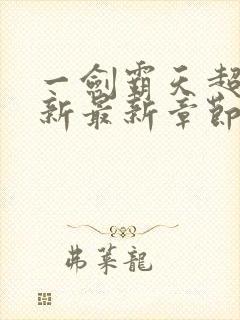 一劍霸天超
新最新章節
弗萊龍